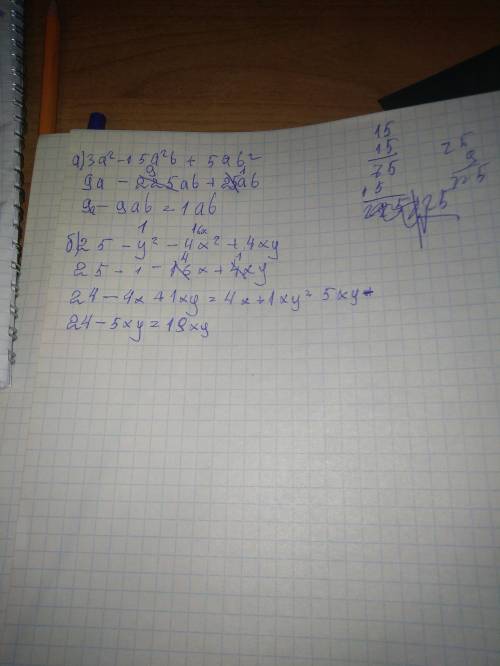 а) 3a² - 15a²b + 5ab²
9a - 225ab + 25ab
9 1
9a - 9ab = 1ab
1 16x
б) 25 - y² - 4x² + 4xy
4 1
25 - 1 - 16x + 4xy
24 - 4x + 1xy = 4x + 1xy = 5xy
24 - 5xy = 19xy
15
15
75
15
225
25
9
225